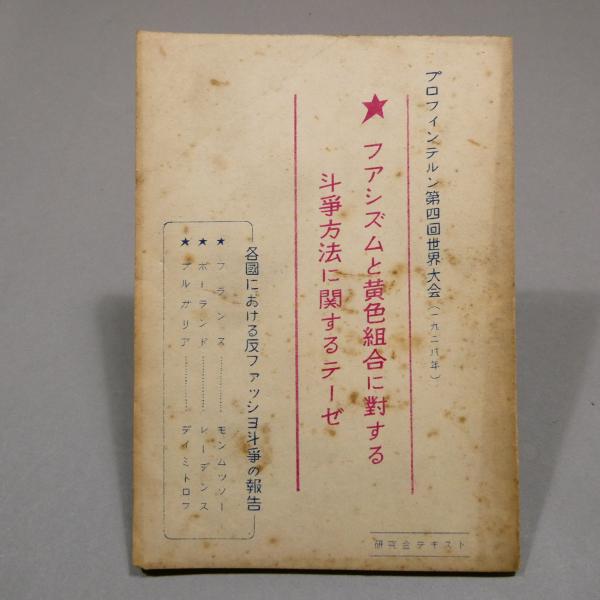 プロフィンテルン第四回世界大会(一九二八年)
★ フアシズムと黄色組合に對する
斗爭方法に関するテーゼ
各國における反ファッショ斗爭の報告
★ フランス…………モンムツソー
★ ポーランド…………レーデンス
★ ブルガリア…………デイミトロフ
研究会テキスト